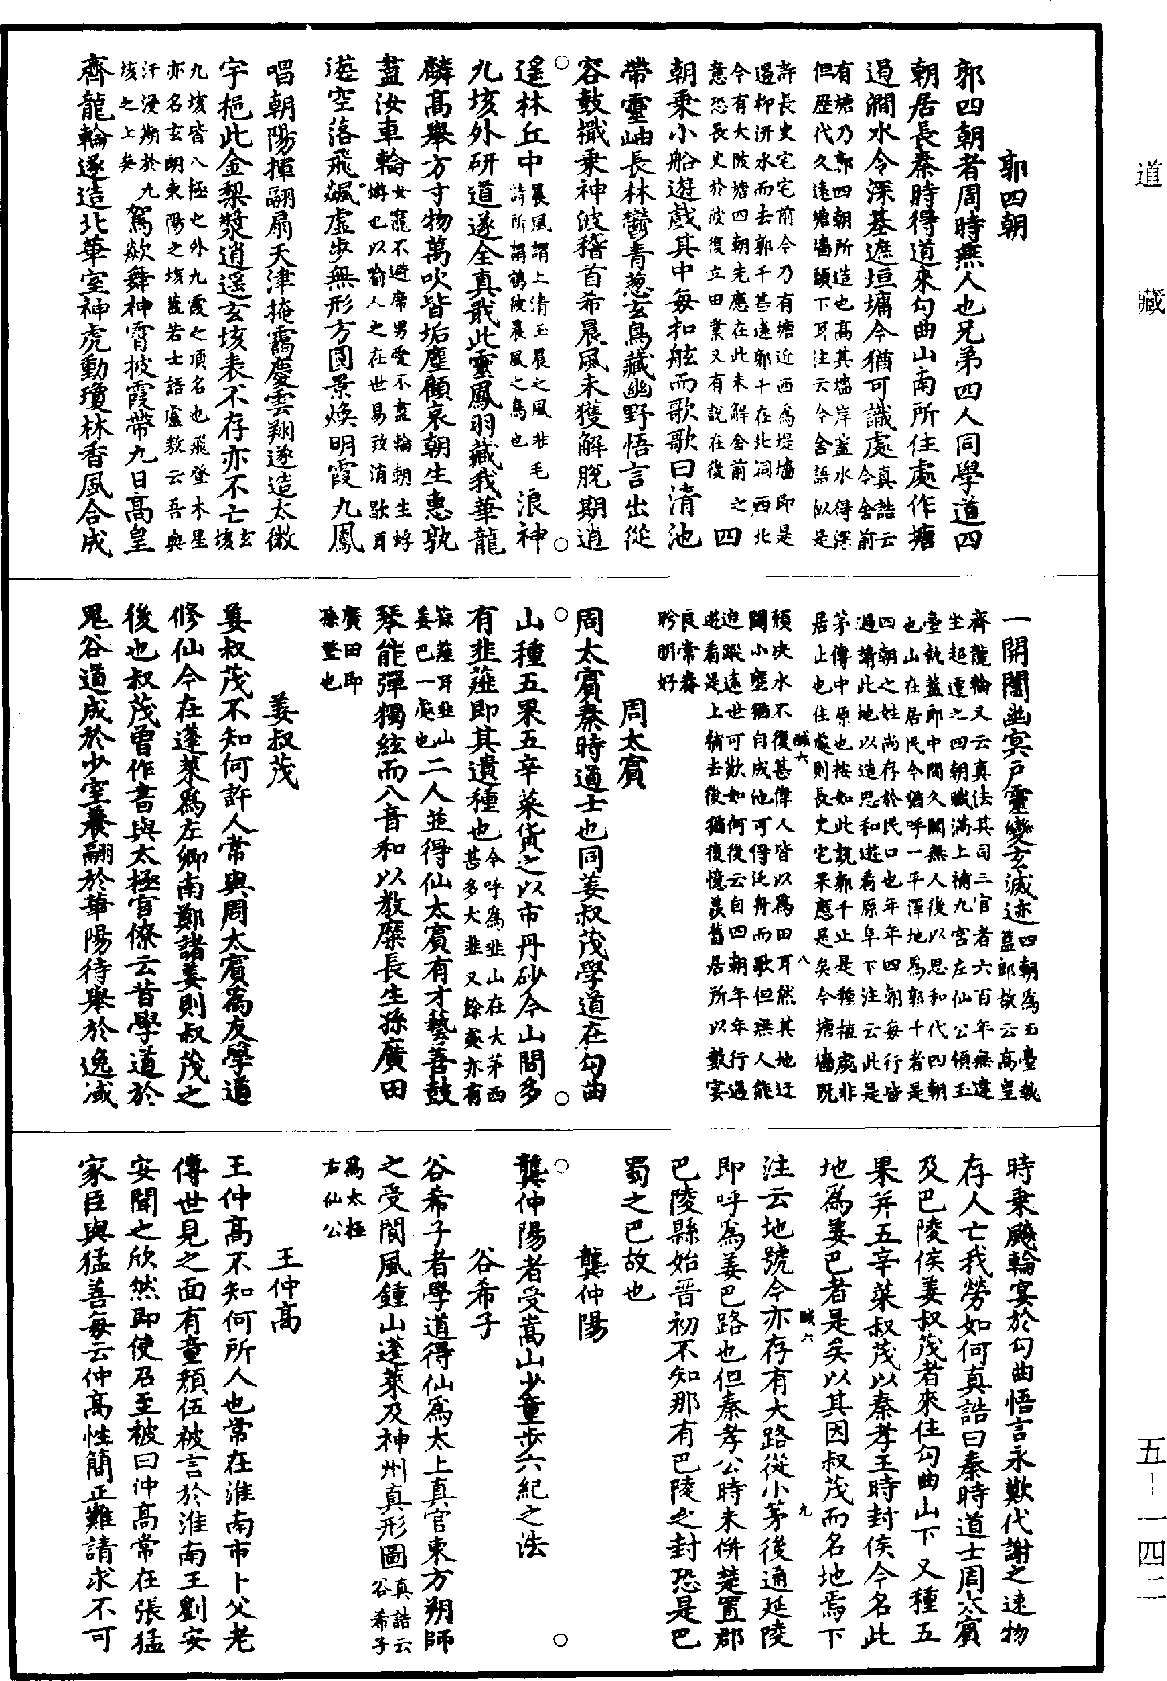 道藏
五-一四二
郭四朝
郭四朝者周時燕人也兄弟四人同學道四
朝居長秦時得道來勾曲山南所住處作塘
遏澗水令深基遮垣墉今猶可識處真誥云今舍前
有塘乃郭四朝所造也高其墻岸蓋水得深
但歷代久遠塘墻頹下耳注云今舍語似是
許長史宅宅前今乃有塘近西為堤墻即是
遏柳汧水而去郭千甚遠郭千在北祠西北
今有大陂塘四朝先應在此未解舍前之
意恐長史於彼復立田業又有說在後四
朝乘小船遊戲其中每扣舷而歌歌曰清池
帶靈岫長林鬱青葱玄鳥藏幽野悟言出從
容鼓檝乘神波稽首希晨風未獲解脫期逍
遙林丘中晨風謂上清玉晨之風非毛詩所謂鴥彼晨風之鳥也浪神
九垓外研道遂全真戢此靈鳳羽藏我華龍
麟高舉方寸物萬吹皆垢塵顧哀朝生蕙孰
盡汝車輪女寵不避席男愛不盡輪朝生蜉蝣也以喻人之在世易致消歇耳
遊空落飛飇虛步無形方圓景煥明霞九鳳
唱朝陽揮翮扇天津掩靄慶雲翔遂造太微
宇挹此金梨漿逍遙玄垓表不存亦不亡玄垓
九垓皆八極之外九霞之頂名也飛登木星
亦名玄朗東陽之垓蓋若士語盧敖云吾與
汗漫期於九垓之上矣駕欻舞神霄披霞帶九日高皇
齊龍輪遂造北華室神虎動瓊林香風合成
一開闔幽冥戶靈變玄滅迹四朝為玉臺執蓋郎故云高皇
齊龍輪又云真法其司三官者六百年無違
坐超遷之四朝職滿上補九宮左仙公領玉
臺執蓋郎中間久闕無人後以思和代四朝
也山在居民今猶呼一平澤地為郭千者是
四朝之姓尚存於民口也年年四朝每行皆
過詣此地以造思和遊看原阜下注云此是
茅傳中原也按如此說郭千止是種植處非
居止也住處則長史宅果應是矣今塘墻既
頹決水不復甚偉人皆以為田耳然其地迂
闊小壅猶自成他可得泛舟而歌但無人能
追蹤遠世可歎如何後云自四朝年年行過
遊看是上補去後猶復憶羡舊居所以數宴
良常
周太賓
周太賓秦時道士也同姜叔茂學道在勾曲
山種五果五辛菜貨之以市丹砂今山間多
有韭薤即其遺種也今呼為韭山在大茅西甚多大韭又餘處亦有
蒜薤耳韭山姜巴一處也二人並得仙太賓有才藝善鼓
琴能彈獨絃而八音和以教糜長生孫廣田
廣田即孫登也
姜叔茂
姜叔茂不知何許人常與周太賓為友學道
修仙今在蓬萊為左卿南鄭諸姜則叔茂之
後也叔茂曾作書與太極官僚云昔學道於
鬼谷道成於少室養翮於華陽待舉於逸域
時乘飇輪宴於勾曲悟言永歎代謝之速物
存人亡我勞如何真誥曰秦時道士周太賓
及巴陵侯姜叔茂者來住勾曲山下又種五
果并五辛菜叔茂以秦孝王時封侯今名此
地為姜巴者是矣以其因叔茂而名地焉下
注云地號今亦存有大路從小茅後通延陵
即呼為姜巴路也但秦孝公時未併楚置郡
巴陵縣始晉初不知那有巴陵之封恐是巴
蜀之巴故也
龔仲陽
龔仲陽者受嵩山少童步六紀之法
谷希子
谷希子者學道得仙為太上真官東方朔師
之受閬風鍾山蓬萊及神州真形圖真誥云谷希子
為太極右仙公
王仲高
王仲高不知何所人也常在淮南市卜父老
傳世見之面有童顏伍被言於淮南王劉安
安聞之欣然即使召至被曰仲高常在張猛
家臣與猛善每云仲高性簡正難請求不可